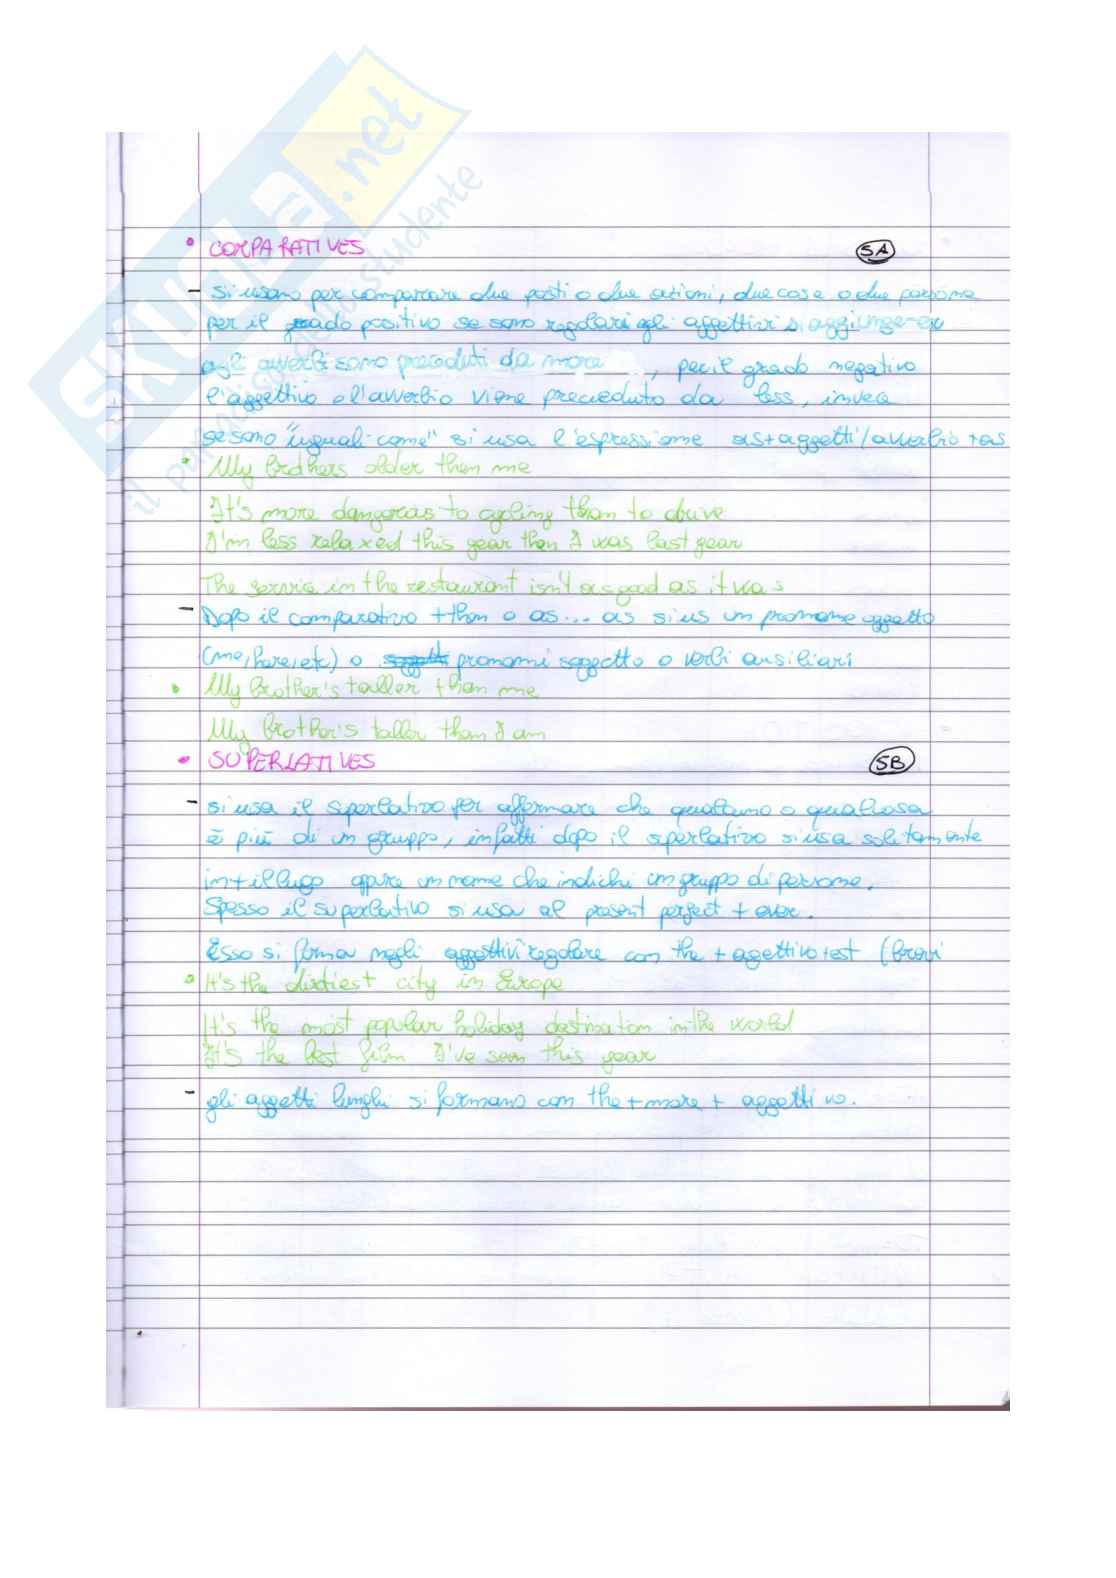 SKUOLA.net
il paradiso dello studente
• COMPARATIVES 5A
- Si usano per comparare due posti o due azioni, due cose o due persone
per il grado positivo se sono regolari gli aggettivi si aggiunge-er
agli avverbi sono preceduti da more, per il grado negativo
l'aggettivo o l'avverbio viene preceduto da less, invece
se sono "ugual-come" si usa l'espressione as+aggetti/avverbio+as
• My brothers older then me
It's more dangerous to cycling than to drive
I'm less relaxed this year then I was last year
The service in the restaurant isn't as good as it was
- Dopo il comparativo +than o as... as si us un pronome oggetto
(me, etc) o pronomi soggetto o verbi ausiliari
• My brother's taller than me
My brother's taller than I am
• SUPERLATIVES 5B
- si usa il superlativo per affermare che qualcuno o qualcosa
è più di un gruppo, infatti dopo il superlativo si usa solitamente
in+il lugo oppure un nome che indichi un gruppo di persone.
Spesso il superlativo si usa al present perfect + ever.
Esso si forma negli aggettivi regolare con the + agettivo+est (brevi
• It's the dirtiest city in Europe
It's the most popular holiday destination in the world
It's the best film I've seen this year
- gli aggetti lunghi si formano con the + more + aggettivo.